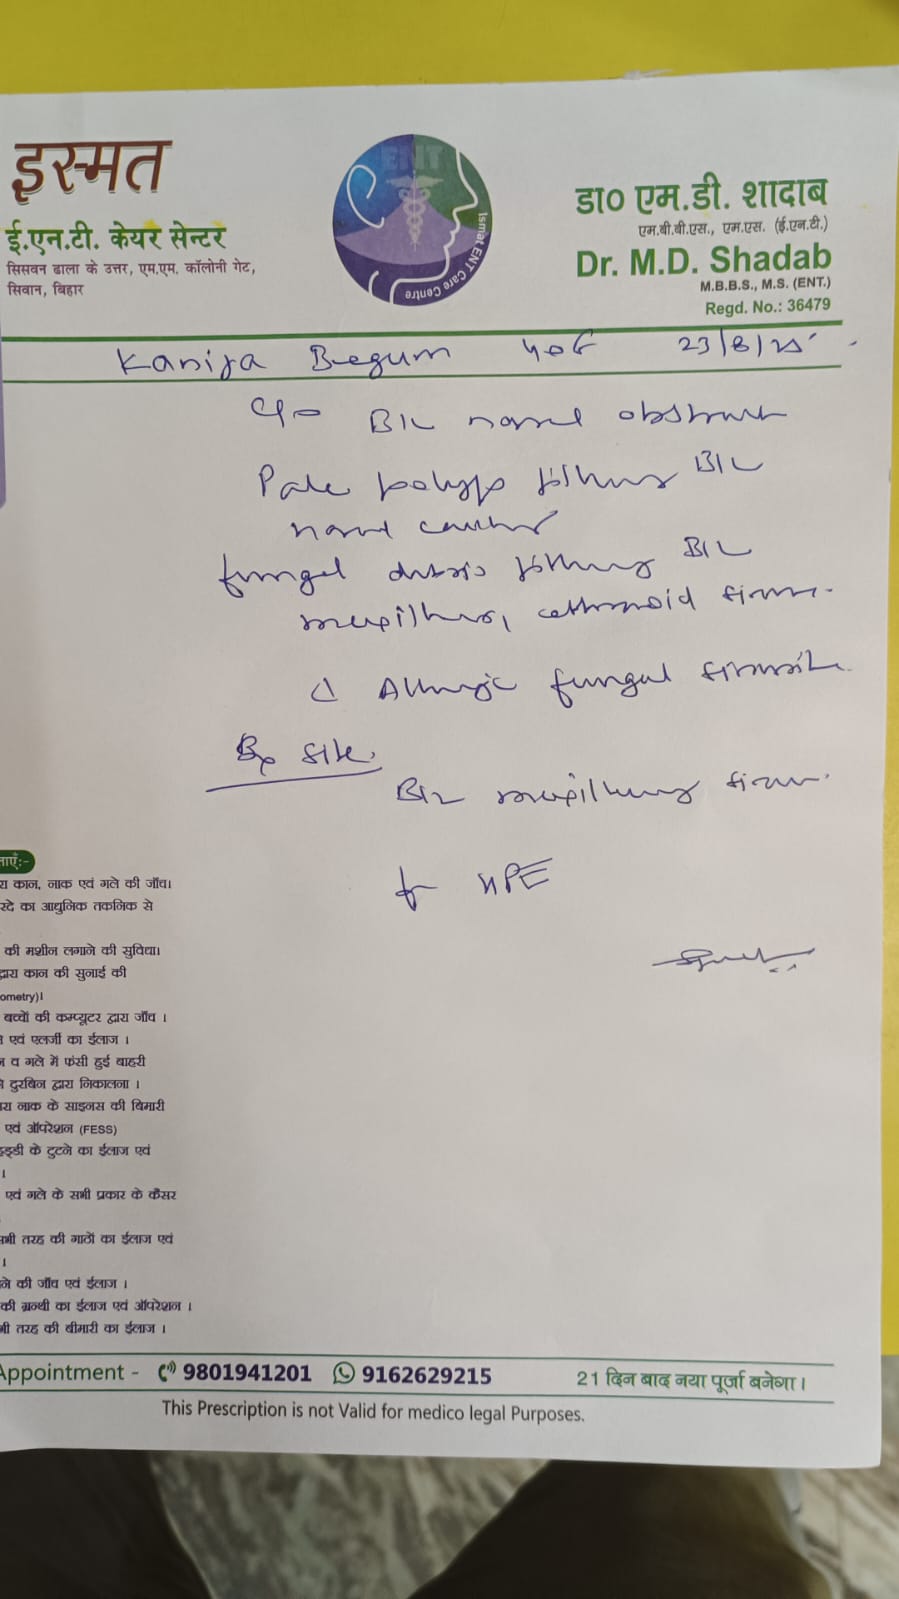 इस्मत
ई.एन.टी. केयर सेन्टर
सिसवन ढाला के उत्तर, एम.एम. कॉलोनी गेट,
सिवान, बिहार
ENT
Ismat ENT Care Centre
डा० एम.डी. शादाब
एम.बी.बी.एस., एम.एस. (ई.एन.टी.)
Dr. M.D. Shadab
M.B.B.S., M.S. (ENT.)
Regd. No.: 36479
Kanija Begum 23/8/25
C/o B/L nasal obstruct
Pale polyp filling B/L
nasal cavity
fungal debris filling B/L
maxillary, ethmoid sinus.
Allergic fungal sinusitis
Bx site.
B/L maxillary sinus.
for HPE
ताएँ:-
रा कान, नाक एवं गले की जाँच।
रदे का आधुनिक तकनिक से
की मशीन लगाने की सुविधा।
द्वारा कान की सुनाई की
ometry)।
बच्चों की कम्प्यूटर द्वारा जाँच ।
एवं एलर्जी का ईलाज ।
न व गले में फंसी हुई बाहरी
दुरबिन द्वारा निकालना ।
रा नाक के साइनस की बिमारी
एवं ऑपरेशन (FESS)
हड्डी के टुटने का ईलाज एवं
।
एवं गले के सभी प्रकार के कैंसर
भी तरह की गाठों का ईलाज एवं
।
ने की जाँच एवं ईलाज ।
की ग्रन्थी का ईलाज एवं ऑपरेशन ।
भी तरह की बीमारी का ईलाज ।
Appointment - 9801941201 9162629215
21 दिन बाद नया पूर्जा बनेगा।
This Prescription is not Valid for medico legal Purposes.